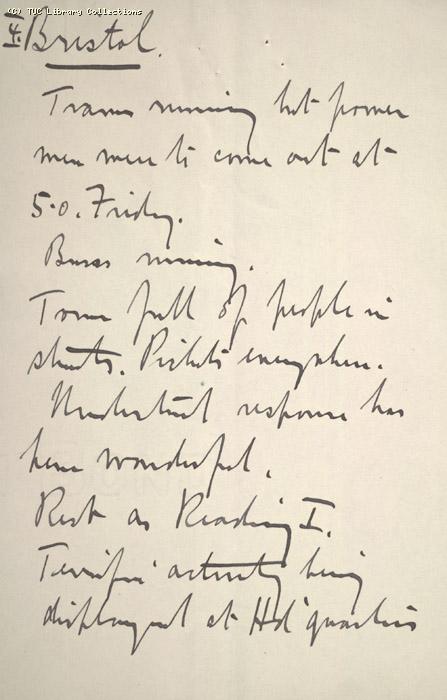 (C) TUC Library Collections
4. Bristol.
Trams running but power
men were to come out at
5.0. Friday.
Buses running.
Town full of people in
streets. Pickets everywhere.
Understand response has
been wonderful.
Rest as Reading I.
Terrific activity being
displayed at Hd'quarters